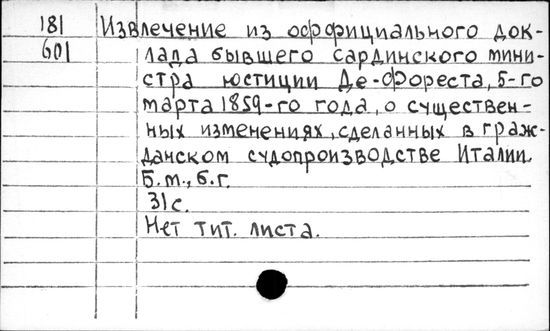 181 Извлечение из оффициального док-
601 лада бывшего сардинского мини-
стра юстиции Де-Фореста, 5-го
марта 1859-го года, о существен-
ных изменениях, сделанных в граж-
данском судопроизводстве Италии.
Б.м., б.г.
31 с.
Нет тит. листа.